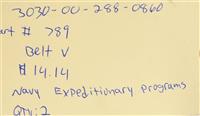 3030-00-288-0860
art # 789
Belt V
# 14.14
Navy Expeditionary programs
QTY:2